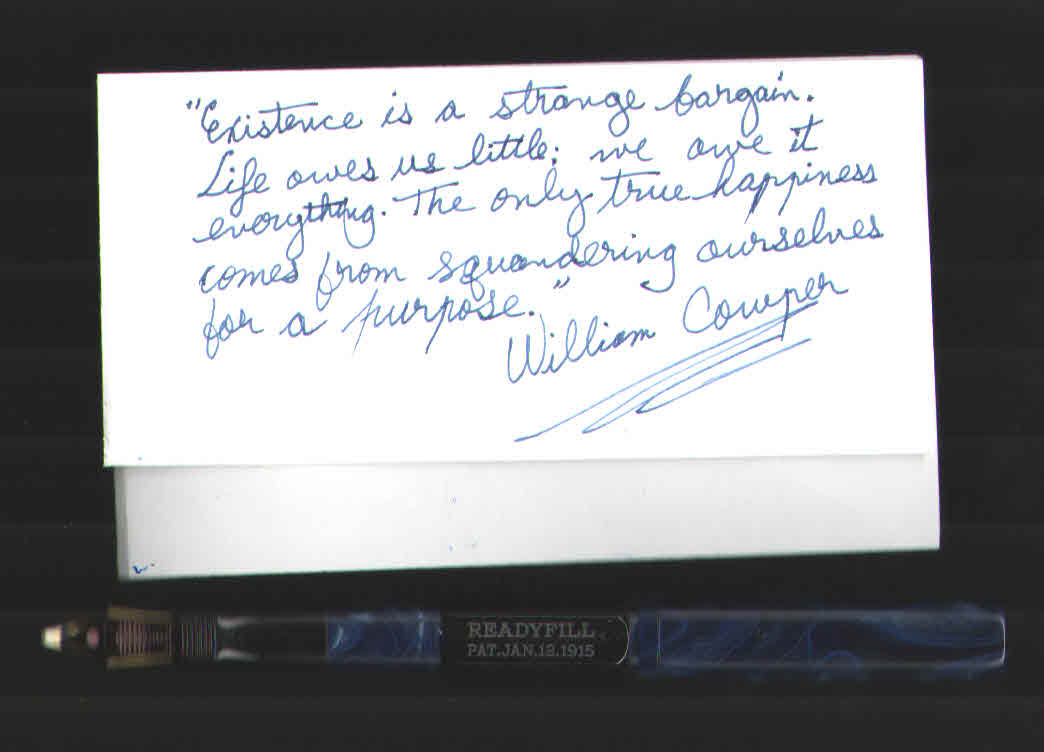 "Existence is a strange bargain.
Life owes us little; we owe it
everything. The only true happiness
comes from squandering ourselves
for a purpose."
William Cowper
READYFILL
PAT.JAN.12.1915